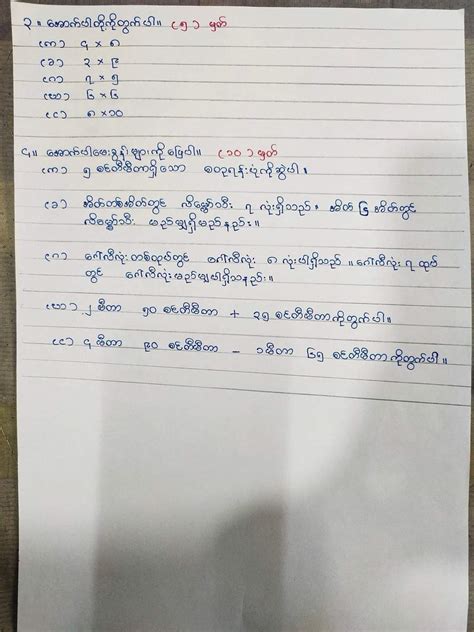 ၃။ အောက်ပါတို့ကိုတွက်ပါ။ (၅) မှတ်
(က) ၄ × ၈
(ခ) ၃ × ၉
(ဂ) ၇ × ၅
(ဃ) ၆ × ၆
(င) ၈ × ၁၀
၄။ အောက်ပါမေးခွန်းများကိုဖြေပါ။ (၁၀) မှတ်
(က) ၅ စင်တီမီတာရှိသော စတုရန်းပုံကိုဆွဲပါ။
(ခ) အိတ်တစ်အိတ်တွင် လိမ္မော်သီး ၇ လုံးရှိသည်၊ အိတ် ၆ အိတ်တွင်
လိမ္မော်သီး မည်မျှရှိမည်နည်း။
(ဂ) ဂေါ်လီလုံးတစ်ထုပ်တွင် ဂေါ်လီလုံး ၈ လုံးပါရှိသည်။ ဂေါ်လီလုံး ၇ ထုပ်
တွင် ဂေါ်လီလုံးမည်မျှပါရှိသနည်း။
(ဃ) ၂ မီတာ ၅၀ စင်တီမီတာ + ၃၅ စင်တီမီတာကိုတွက်ပါ။
(င) ၄ မီတာ ၉၀ စင်တီမီတာ − ၁မီတာ ၆၅ စင်တီမီတာကိုတွက်ပါ။